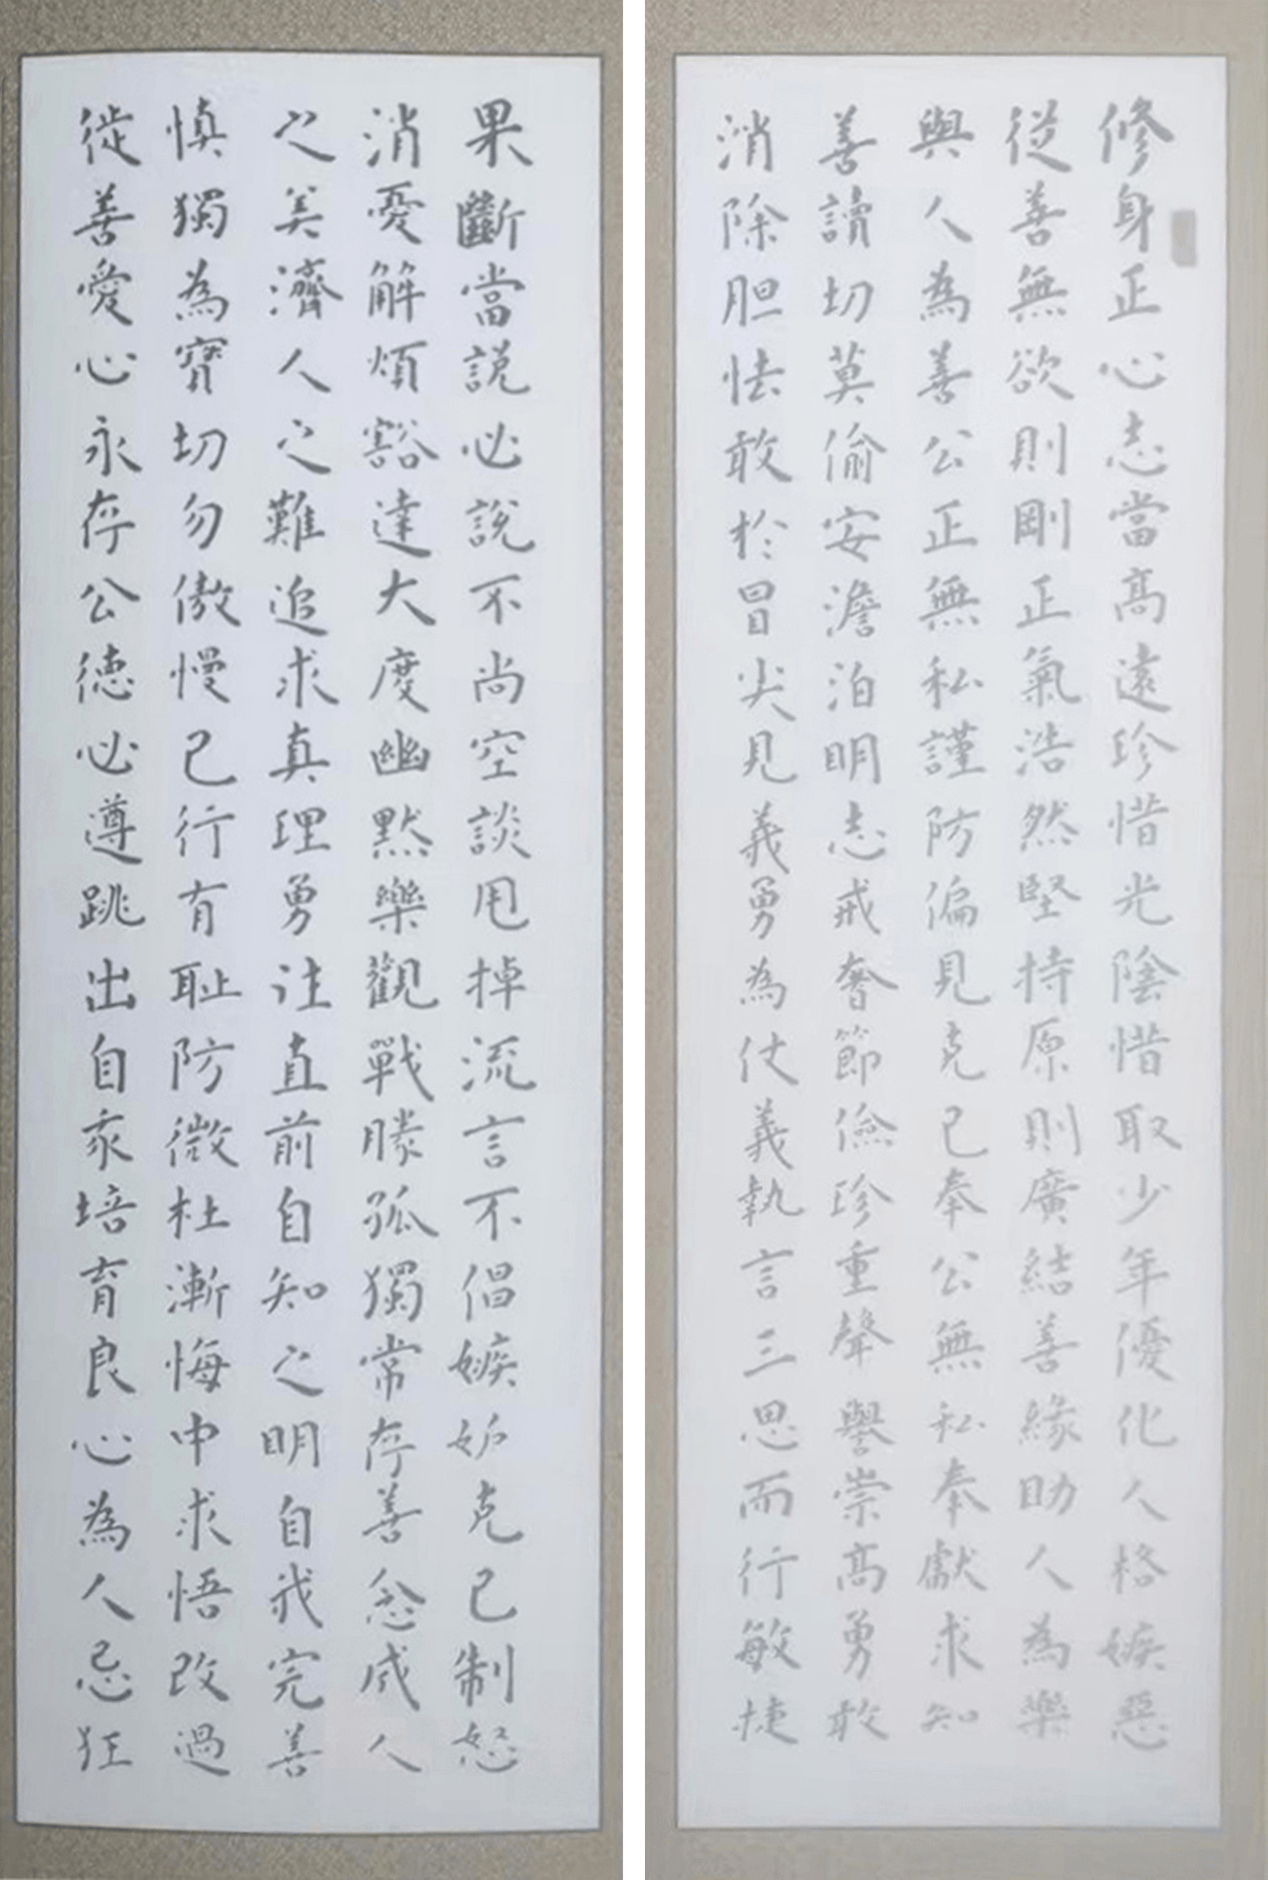 修身正心志當高遠珍惜光陰惜取少年優化人格嫉惡
從善無欲則剛正氣浩然堅持原則廣結善緣助人為樂
與人為善公正無私謹防偏見克己奉公無私奉獻求知
善讀切莫偷安澹泊明志戒奢節儉珍重聲譽崇高勇敢
消除胆怯敢於冒尖見義勇為仗義執言三思而行敏捷
果斷當說必說不尚空談甩掉流言不倡嫉妒克己制怒
消憂解煩豁達大度幽默樂觀戰勝孤獨常存善念成人
之美濟人之難追求真理勇往直前自知之明自我完善
慎獨為寶切勿傲慢己行有耻防微杜漸悔中求悟改過
從善愛心永存公德必遵跳出自家培育良心為人忌狂